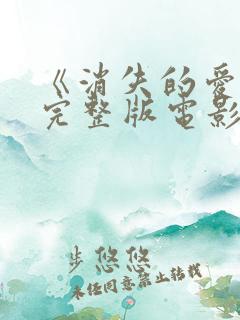 《消失的爱
完整版电影
步悠悠
未经同意禁止转载